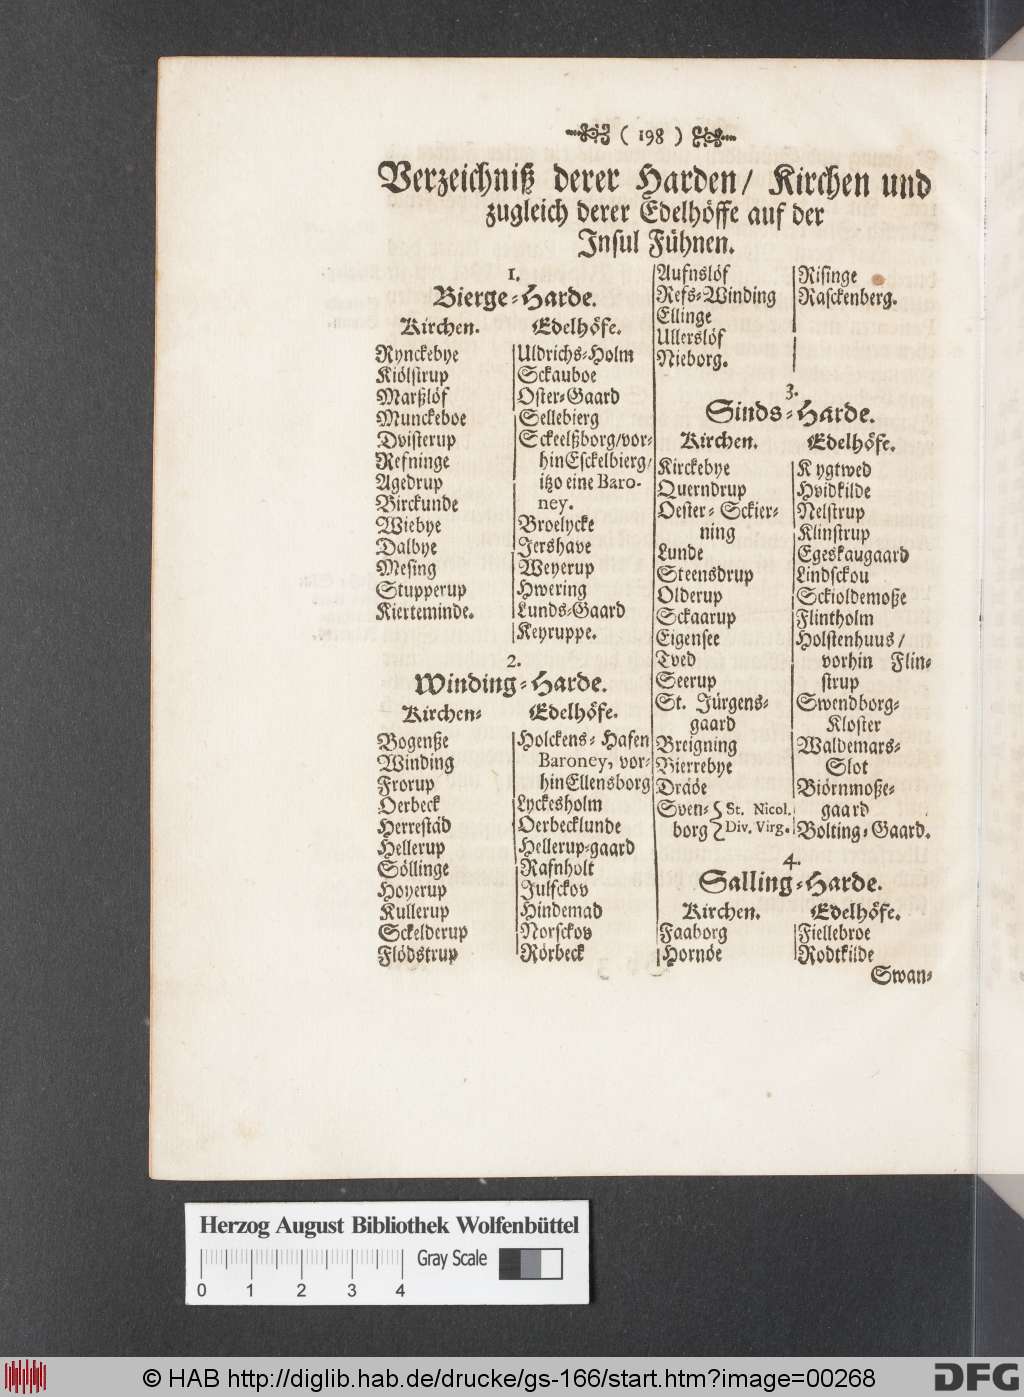 ( 198 )
Verzeichniß derer Harden/ Kirchen und
zugleich derer Edelhöffe auf der
Insul Fühnen.
1.
Bierge-Harde.
Kirchen. Edelhöfe.
Rynckebye Uldrichs-Holm
Kiölstrup Sckauboe
Marßlöf Oster-Gaard
Munckeboe Sellebierg
Dvisterup Sckeelßborg/vor-
Refninge hin Esckelbierg/
Agedrup itzo eine Baro-
Birckunde ney.
Wiebye Broelycke
Dalbye Jershave
Mesing Weyerup
Stupperup Hwering
Kierteminde. Lunds-Gaard
Keyruppe.
2.
Winding-Harde.
Kirchen- Edelhöfe.
Bogenße Holckens-Hafen
Winding Baroney, vor-
Frorup hin Ellensborg
Oerbeck Lyckesholm
Herrestäd Oerbecklunde
Hellerup Hellerup-gaard
Söllinge Rafnholt
Hoyerup Julsckov
Kullerup Hindemad
Sckelderup Norsckov
Flödstrup Rörbeck
Aufnslöf Risinge
Refs-Winding Rasckenberg.
Ellinge
Ullerslöf
Nieborg.
3.
Sinds-Harde.
Kirchen. Edelhöfe.
Kirckebye Kygtwed
Querndrup Hvidkilde
Oester-Sckier- Nelstrup
ning Klinstrup
Lunde Egeskaugaard
Steensdrup Lindsckou
Olderup Sckioldemoße
Sckaarup Flintholm
Eigensee Holstenhuus/
Tved vorhin Flin-
Seerup strup
St. Jürgens- Swendborg-
gaard Kloster
Breigning Waldemars-
Bierrebye Slot
Dräöe Biörnmoße-
Sven- { St. Nicol. gaard
borg { Div. Virg. Bolting-Gaard.
4.
Salling-Harde.
Kirchen. Edelhöfe.
Faaborg Fiellebroe
Hornöe Rodtkilde
Swan-
Herzog August Bibliothek Wolfenbüttel
Gray Scale
0 1 2 3 4
© HAB http://diglib.hab.de/drucke/gs-166/start.htm?image=00268
DFG